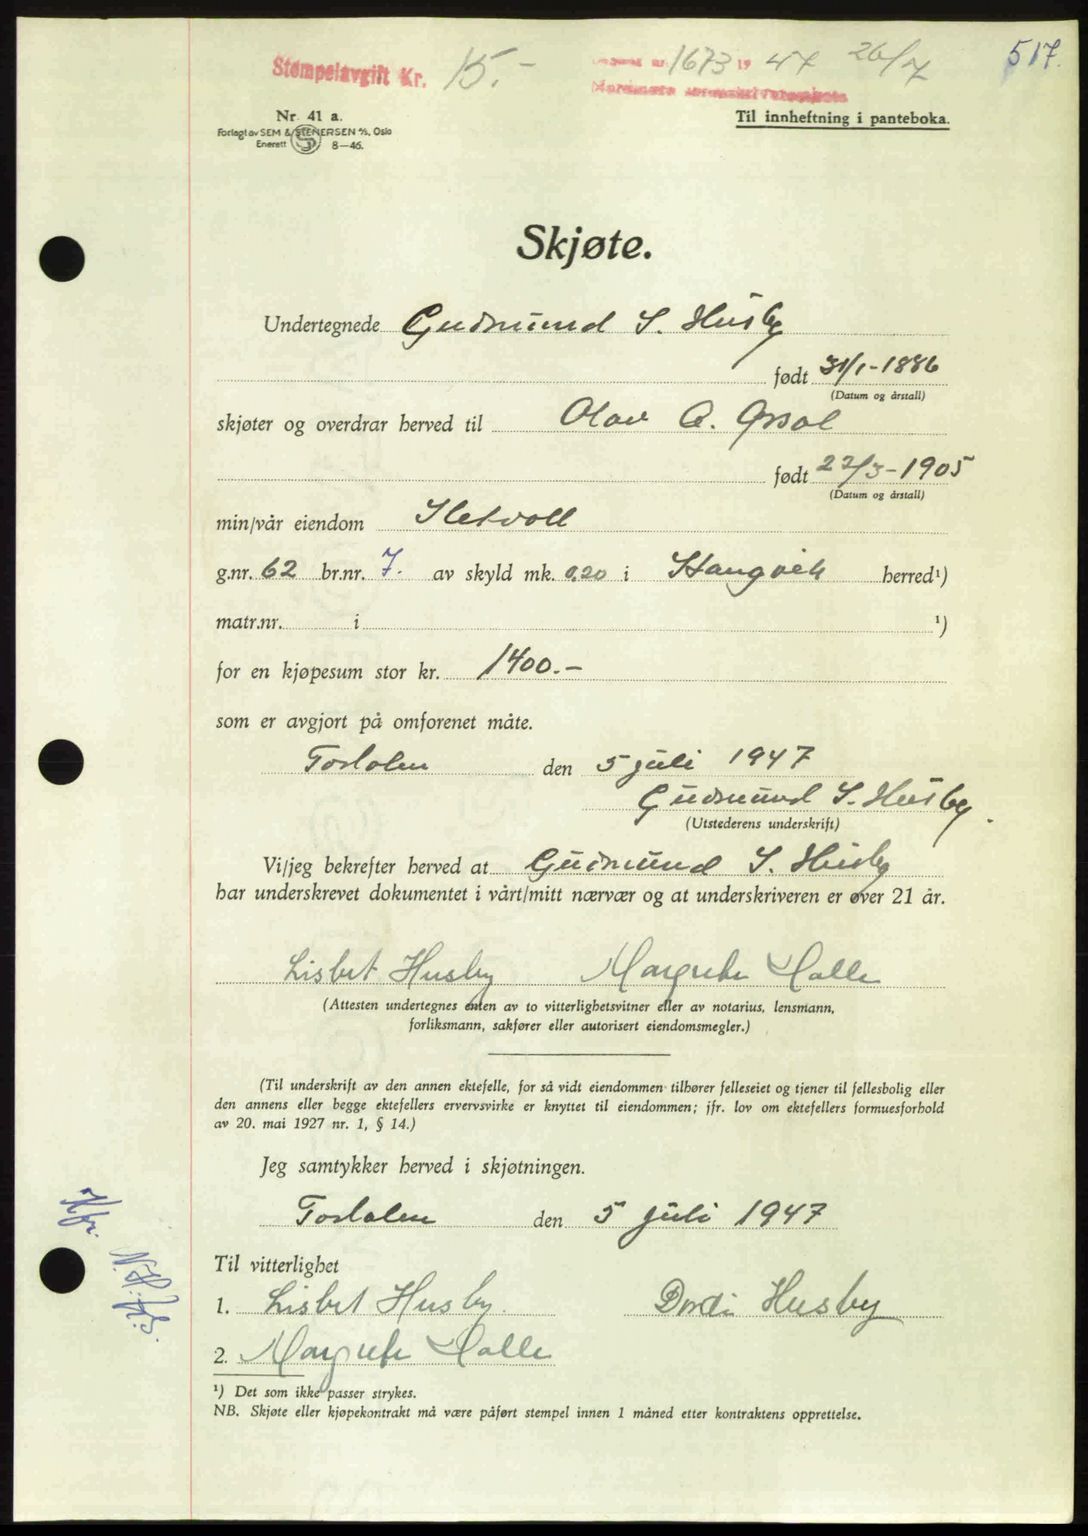 517.
Stempelavgift Kr. 15.- 1673 19 47 26/7
Nr. 41 a.
Forlagt av SEM & STENERSEN A/S, Oslo
Enerett 8—46.
Til innheftning i panteboka.
Skjøte.
Undertegnede Gudmund S. Husby
født 31/1-1886
(Datum og årstall)
skjøter og overdrar herved til Olav A.
født 22/3-1905
(Datum og årstall)
min/vår eiendom Sletvoll
g.nr. 62 br.nr. 7. av skyld mk. 0,20 i Stangvik herred¹)
matr.nr. i ¹)
for en kjøpesum stor kr. 1400.-
som er avgjort på omforenet måte.
Torlalen den 5 juli 1947
Gudmund S. Husby.
(Utstederens underskrift)
Vi/jeg bekrefter herved at Gudmund S. Husby
har underskrevet dokumentet i vårt/mitt nærvær og at underskriveren er over 21 år.
Lisbet Husby Margrethe Halle
(Attesten undertegnes enten av to vitterlighetsvitner eller av notarius, lensmann,
forliksmann, sakfører eller autorisert eiendomsmegler.)
(Til underskrift av den annen ektefelle, for så vidt eiendommen tilhører felleseiet og tjener til fellesbolig eller
den annens eller begge ektefellers ervervsvirke er knyttet til eiendommen; jfr. lov om ektefellers formuesforhold
av 20. mai 1927 nr. 1, § 14.)
Jeg samtykker herved i skjøtningen.
Torlalen den 5 juli 1947
Til vitterlighet
1. Lisbet Husby. Dordi Husby
2. Margrethe Halle
¹) Det som ikke passer strykes.
NB. Skjøte eller kjøpekontrakt må være påført stempel innen 1 måned etter kontraktens opprettelse.